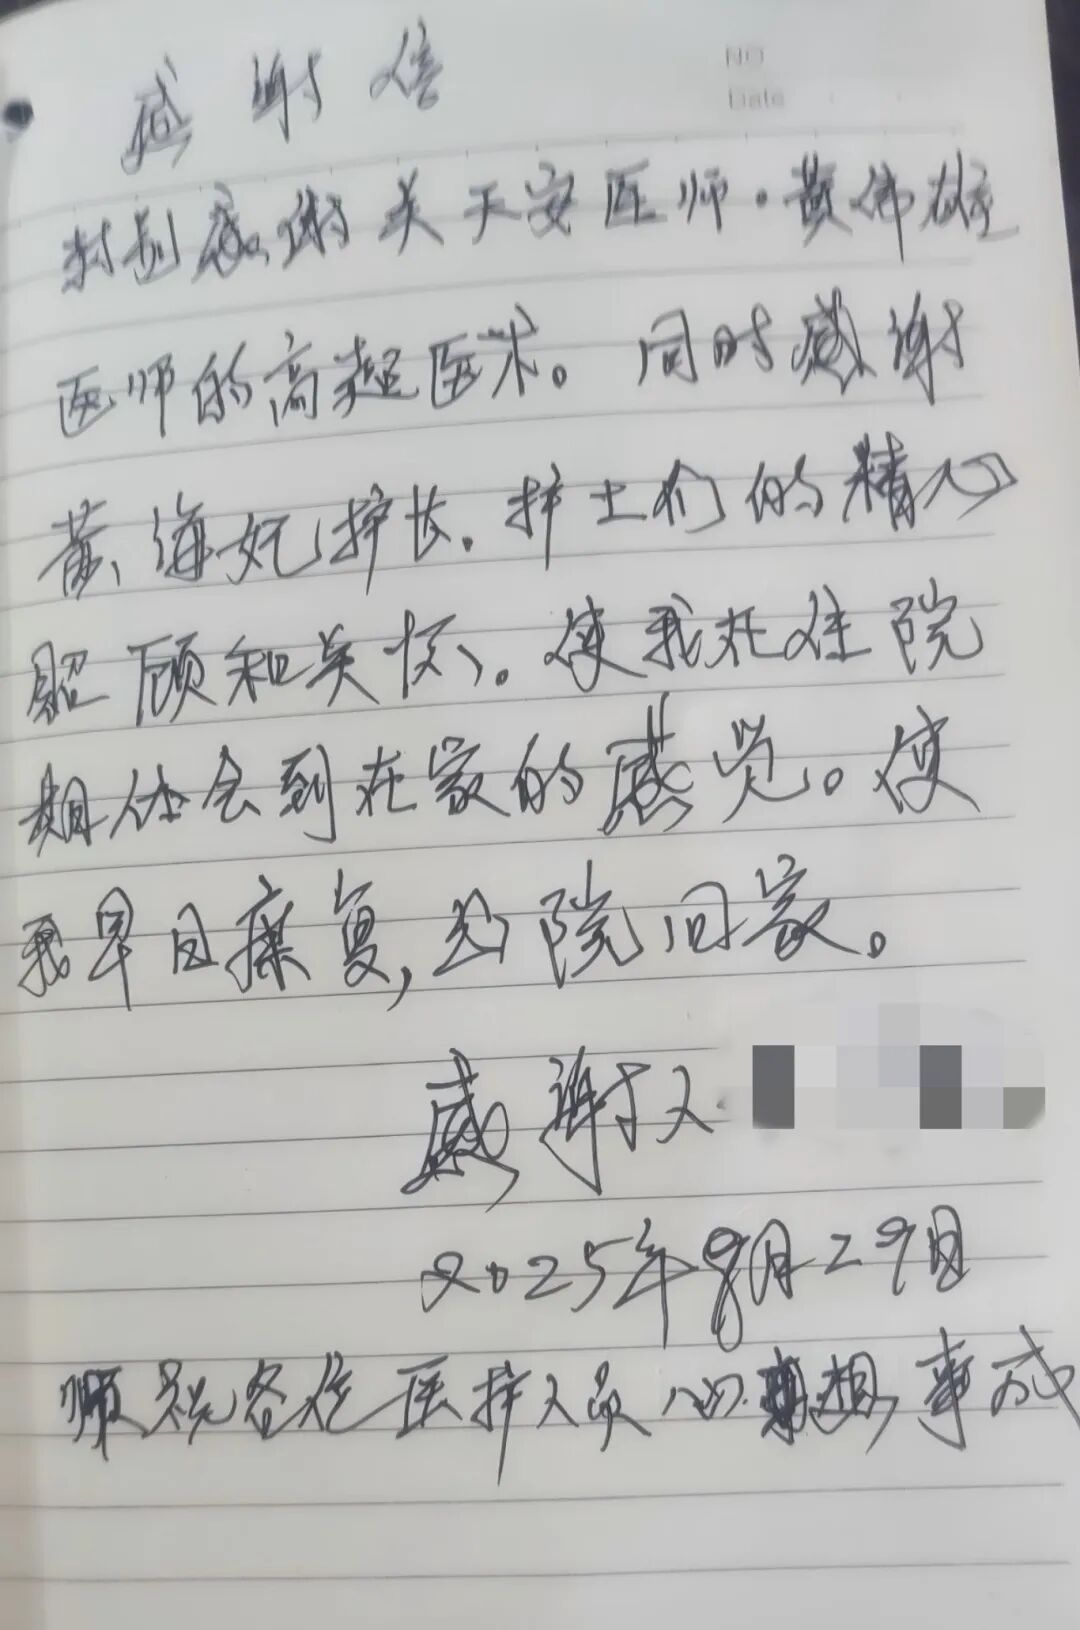 感谢信
NO
Date
特别感谢关天安医师·黄伟雄
医师的高超医术。同时感谢
黄海妃护长.护士们的精心
照顾和关怀。使我在住院
期体会到在家的感觉。使
我早日康复,出院回家。
感谢人.
2025年8月29日
顺祝各位医护人员心想事成